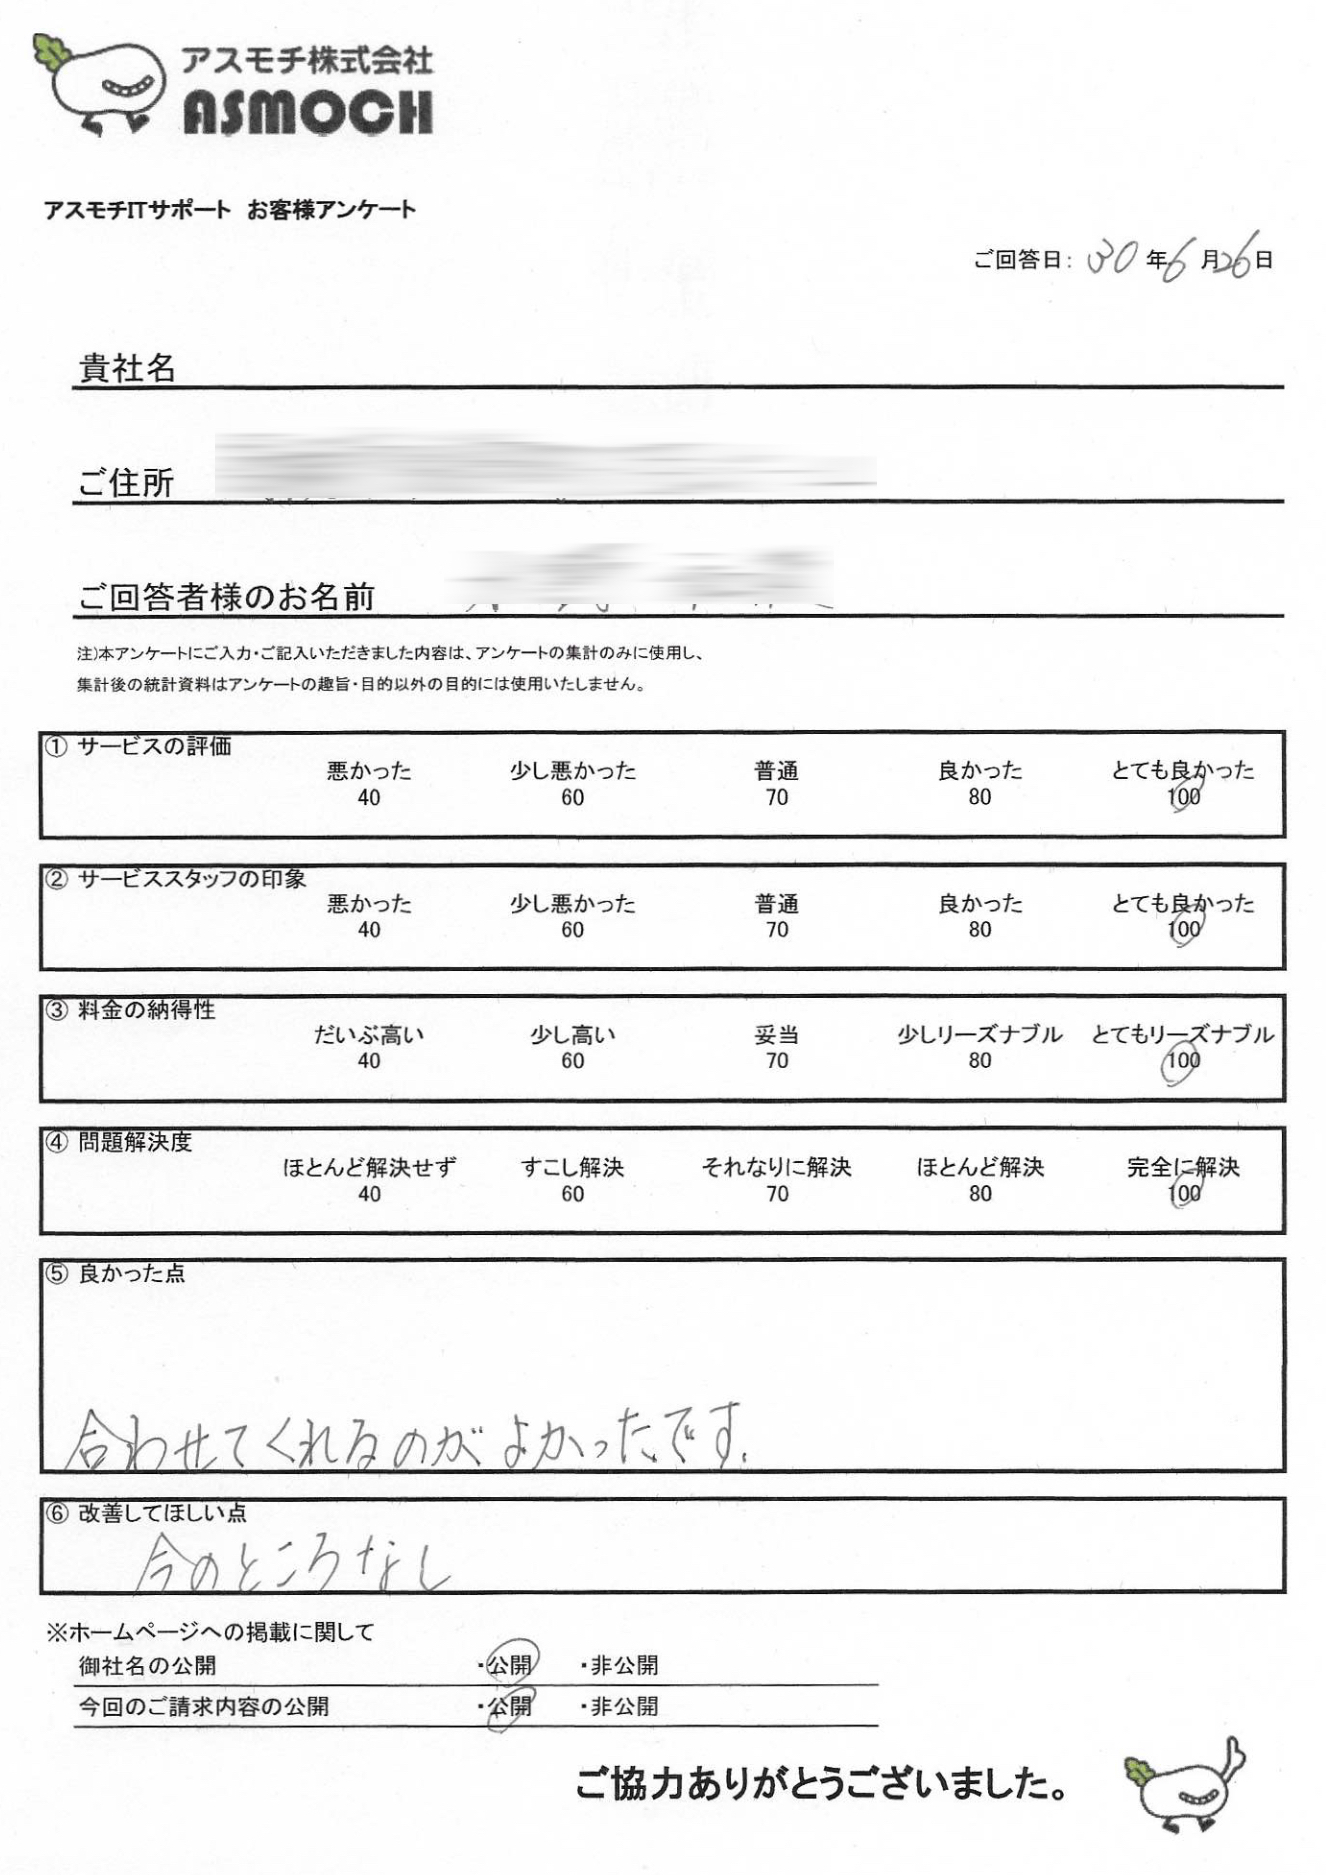 アスモチ株式会社
ASMOCH
アスモチITサポート お客様アンケート
ご回答日: 30年6月26日
貴社名
ご住所
ご回答者様のお名前
注)本アンケートにご入力・ご記入いただきました内容は、アンケートの集計のみに使用し、
集計後の統計資料はアンケートの趣旨・目的以外の目的には使用いたしません。
① サービスの評価
悪かった 少し悪かった 普通 良かった とても良かった
40 60 70 80 100
② サービススタッフの印象
悪かった 少し悪かった 普通 良かった とても良かった
40 60 70 80 100
③ 料金の納得性
だいぶ高い 少し高い 妥当 少しリーズナブル とてもリーズナブル
40 60 70 80 100
④ 問題解決度
ほとんど解決せず すこし解決 それなりに解決 ほとんど解決 完全に解決
40 60 70 80 100
⑤ 良かった点
合わせてくれるのがよかったです.
⑥ 改善してほしい点
今のところなし
※ホームページへの掲載に関して
御社名の公開 ・公開 ・非公開
今回のご請求内容の公開 ・公開 ・非公開
ご協力ありがとうございました。